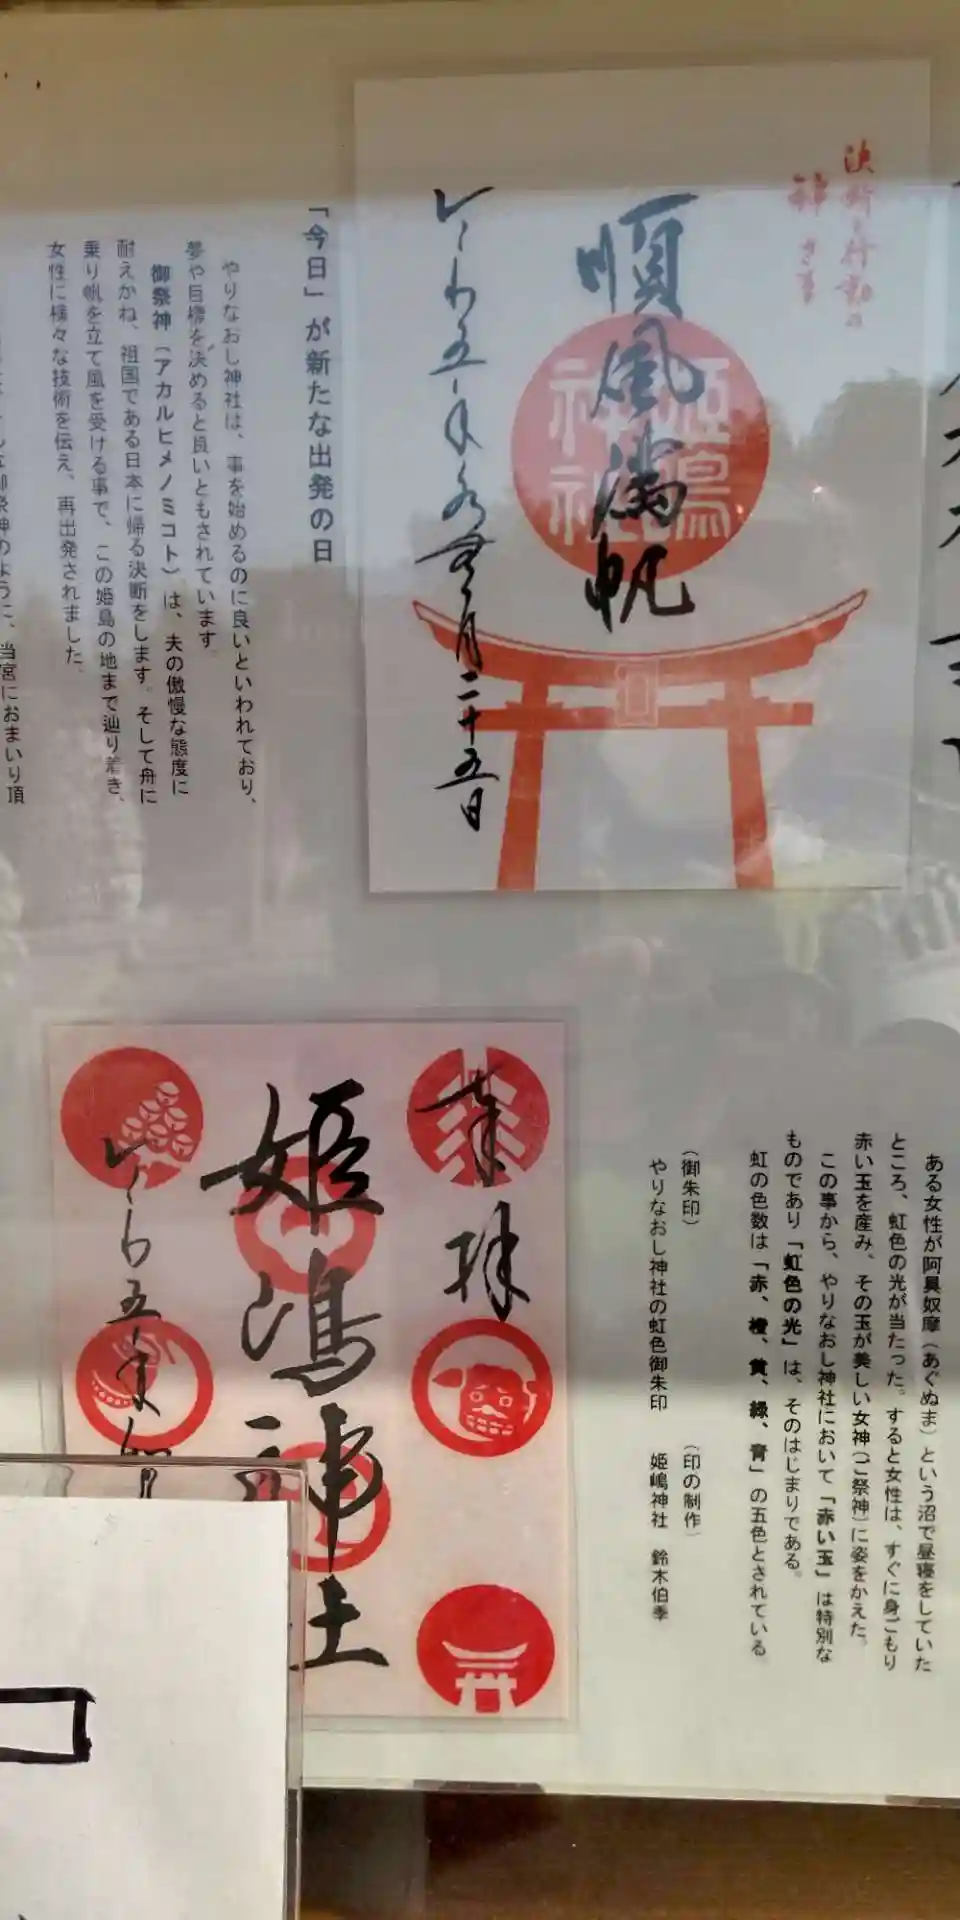 決断と行動の
神さま
順風満帆
姫嶋
神社
れいわ五年
月二十五日
「今日」が新たな出発の日
やりなおし神社は、事を始めるのに良いといわれており、
夢や目標を決めると良いともされています。
御祭神（アカルヒメノミコト）は、夫の傲慢な態度に
耐えかね、祖国である日本に帰る決断をします。そして舟に
乗り帆を立て風を受ける事で、この姫島の地まで辿り着き、
女性に様々な技術を伝え、再出発されました。
御祭神のように、当宮におまいり頂
ある女性が阿具奴摩（あぐぬま）という沼で昼寝をしていた
ところ、虹色の光が当たった。すると女性は、すぐに身ごもり
赤い玉を産み、その玉が美しい女神（ご祭神）に姿をかえた。
この事から、やりなおし神社において「赤い玉」は特別な
ものであり「虹色の光」は、そのはじまりである。
虹の色数は「赤、橙、黄、緑、青」の五色とされている
（御朱印）
やりなおし神社の虹色御朱印
（印の制作）
姫嶋神社　鈴木伯季
奉拝
姫嶋神社
れいわ五年